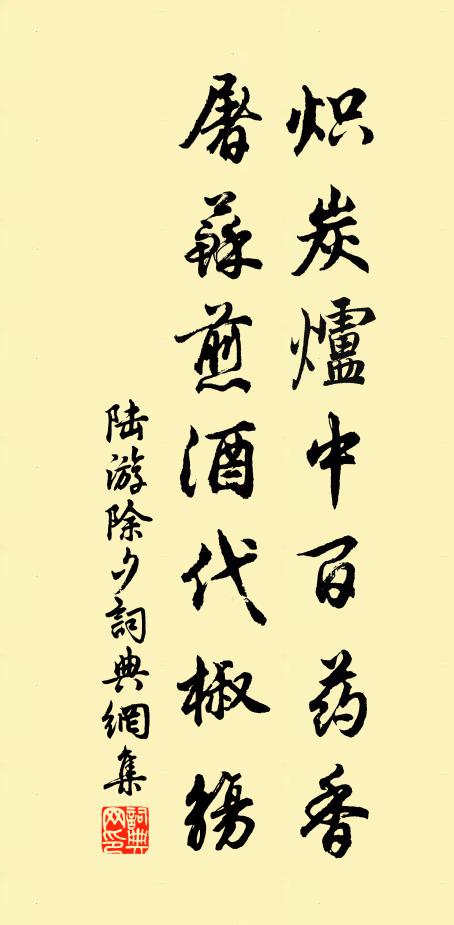 炽炭爐中百药香
屠蘇煎酒代椒觴
陆游除夕詞典網集
詞典網印